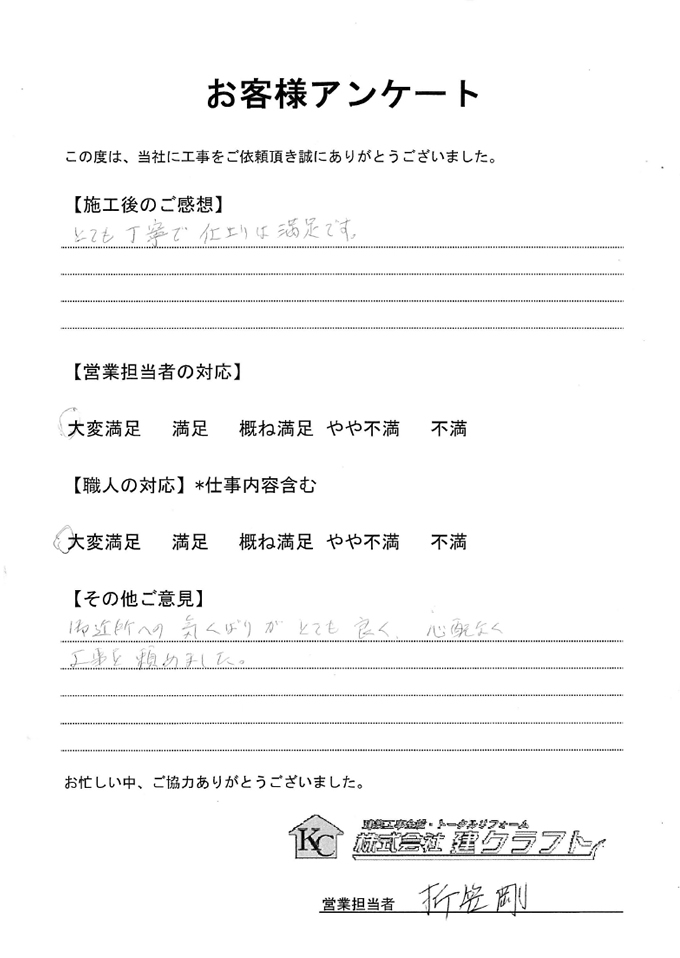 お客様アンケート
この度は、当社に工事をご依頼頂き誠にありがとうございました。
【施工後のご感想】
とても丁寧で 仕上りは満足です。
【営業担当者の対応】
大変満足 満足 概ね満足 やや不満 不満
【職人の対応】*仕事内容含む
大変満足 満足 概ね満足 やや不満 不満
【その他ご意見】
御近所への 気くばりが とても 良く、心配なく
工事を頼めました。
お忙しい中、ご協力ありがとうございました。
KC
建築工事全般・トータルリフォーム
株式会社 建クラフト
営業担当者 折笠剛